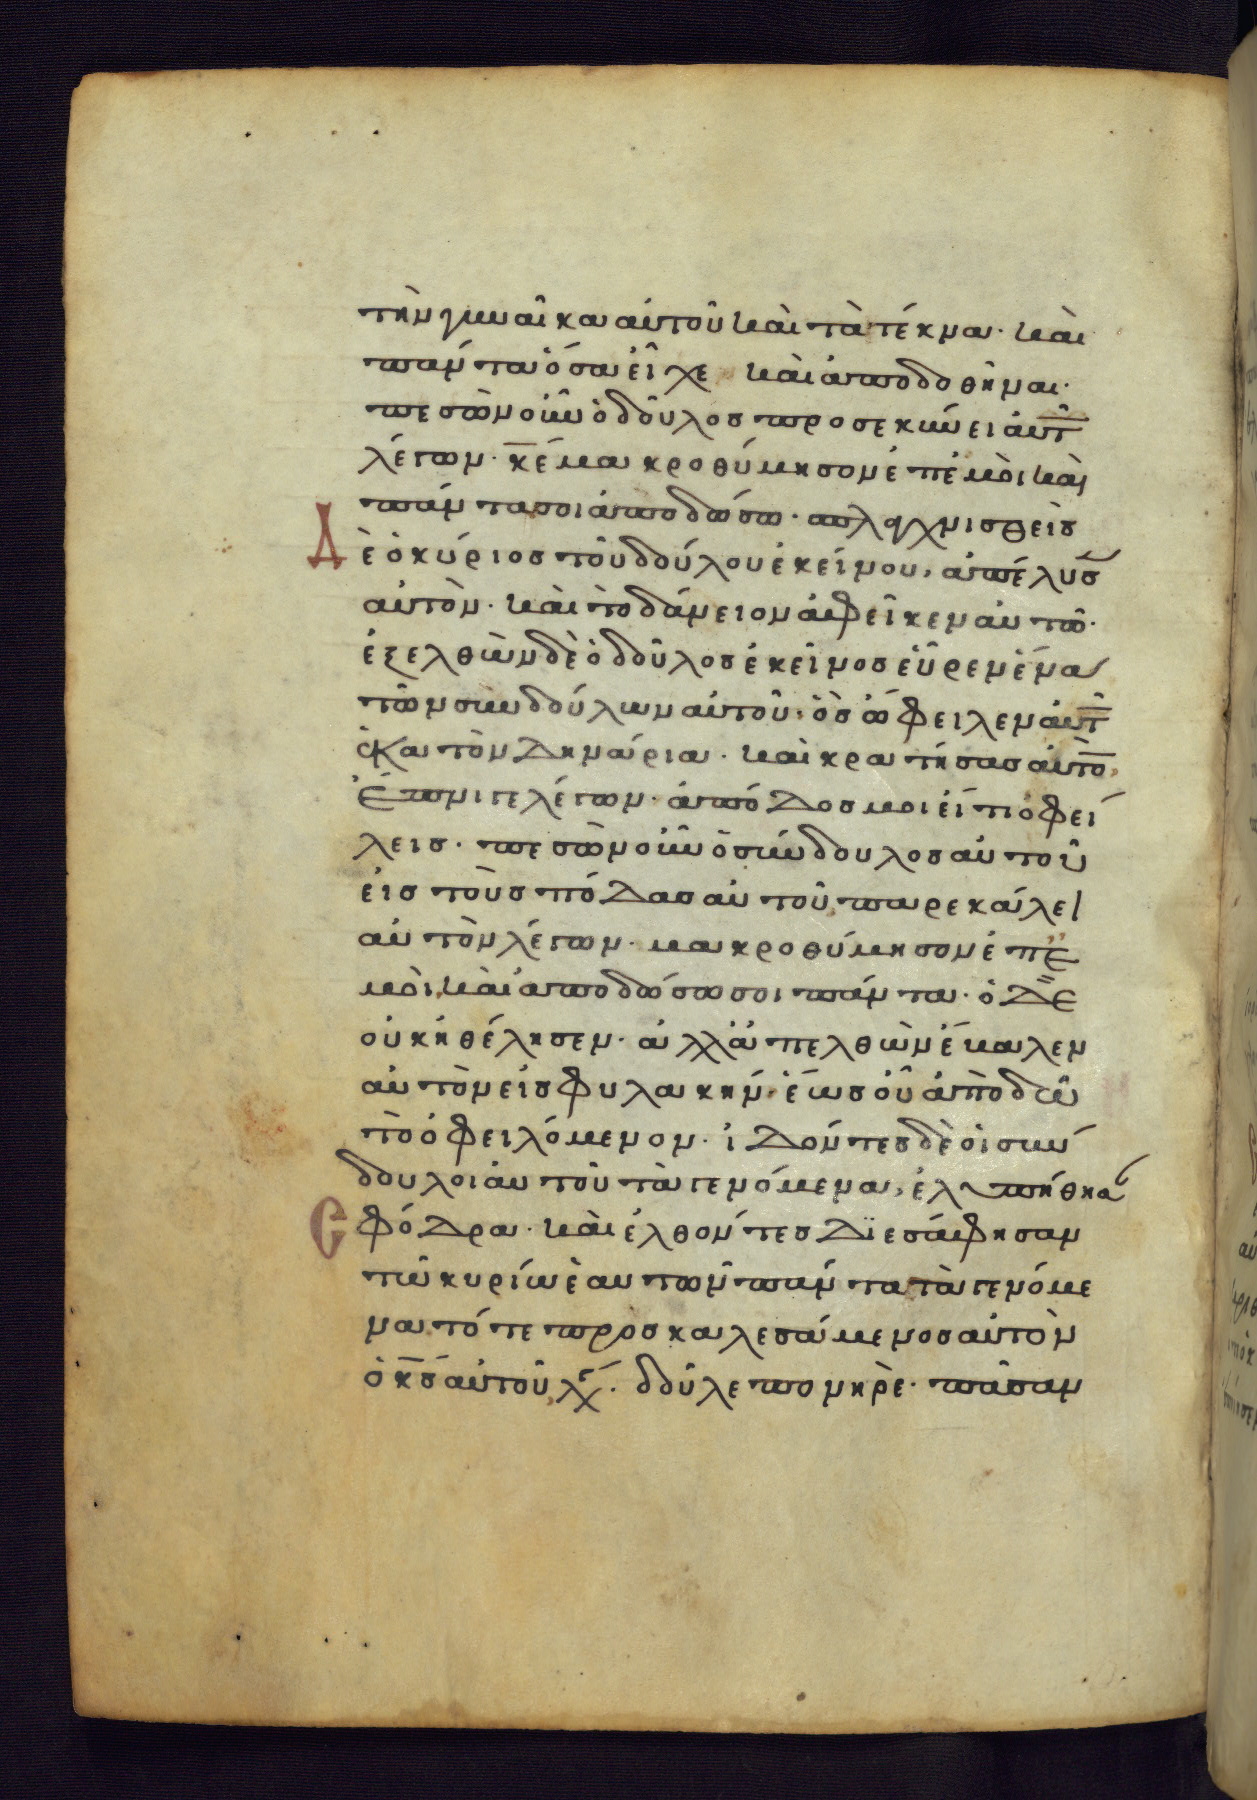 τὴν γυναῖκα αὐτοῦ καὶ τὰ τέκνα· καὶ
πάντα ὅσα εἶχε καὶ ἀποδοθῆναι·
πεσὼν οὖν ὁ δοῦλος προσεκύνει αὐτ
λέγων· κ̅ε̅ μακροθύμησον ἐπ' ἐμοὶ καὶ
πάντα σοι ἀποδώσω· σπλαγχνισθεὶς
Δὲ ὁ κύριος τοῦ δούλου ἐκείνου, ἀπέλυσ
αὐτὸν· καὶ τὸ δάνειον ἀφεῖκεν αὐτῶ·
ἐξελθὼν δὲ ὁ δοῦλος ἐκεῖνος εὗρεν ἕνα
τῶν συνδούλων αὐτοῦ· ὃς ὤφειλεν αὐτ
ἑκατὸν δηνάρια· καὶ κρατήσας αὐτὸ
ἔπνιγε λέγων· ἀπόδος μοι εἴ τι ὀφεί
λεις· πεσὼν οὖν ὁ σύνδουλος αὐτοῦ
εἰς τοὺς πόδας αὐτοῦ, παρεκάλει
αὐτὸν λέγων· μακροθύμησον ἐπ' ἐ
μοὶ, καὶ ἀποδώσω σοι πάντα· ὁ δὲ
οὐκ ἤθέλησεν· ἀλλὰ ἀπελθὼν ἔβαλεν
αὐτὸν εἰς φυλακήν· ἕως οὗ ἀποδῶ
τὸ ὀφειλόμενον· ἰδόντες δὲ οἱ σύν
δουλοι αὐτοῦ τὰ γενόμενα, ἐλυπήθησα
Σφόδρα· καὶ ἐλθόντες διεσάφησαν
τῶ κυρίω ἑαυτῶν πάντα τὰ γενόμε
να τότε προσκαλεσάμενος αὐτὸν
ὁ κ̅ς̅ αὐτοῦ, λέγ· δοῦλε πονηρὲ· πᾶσαν